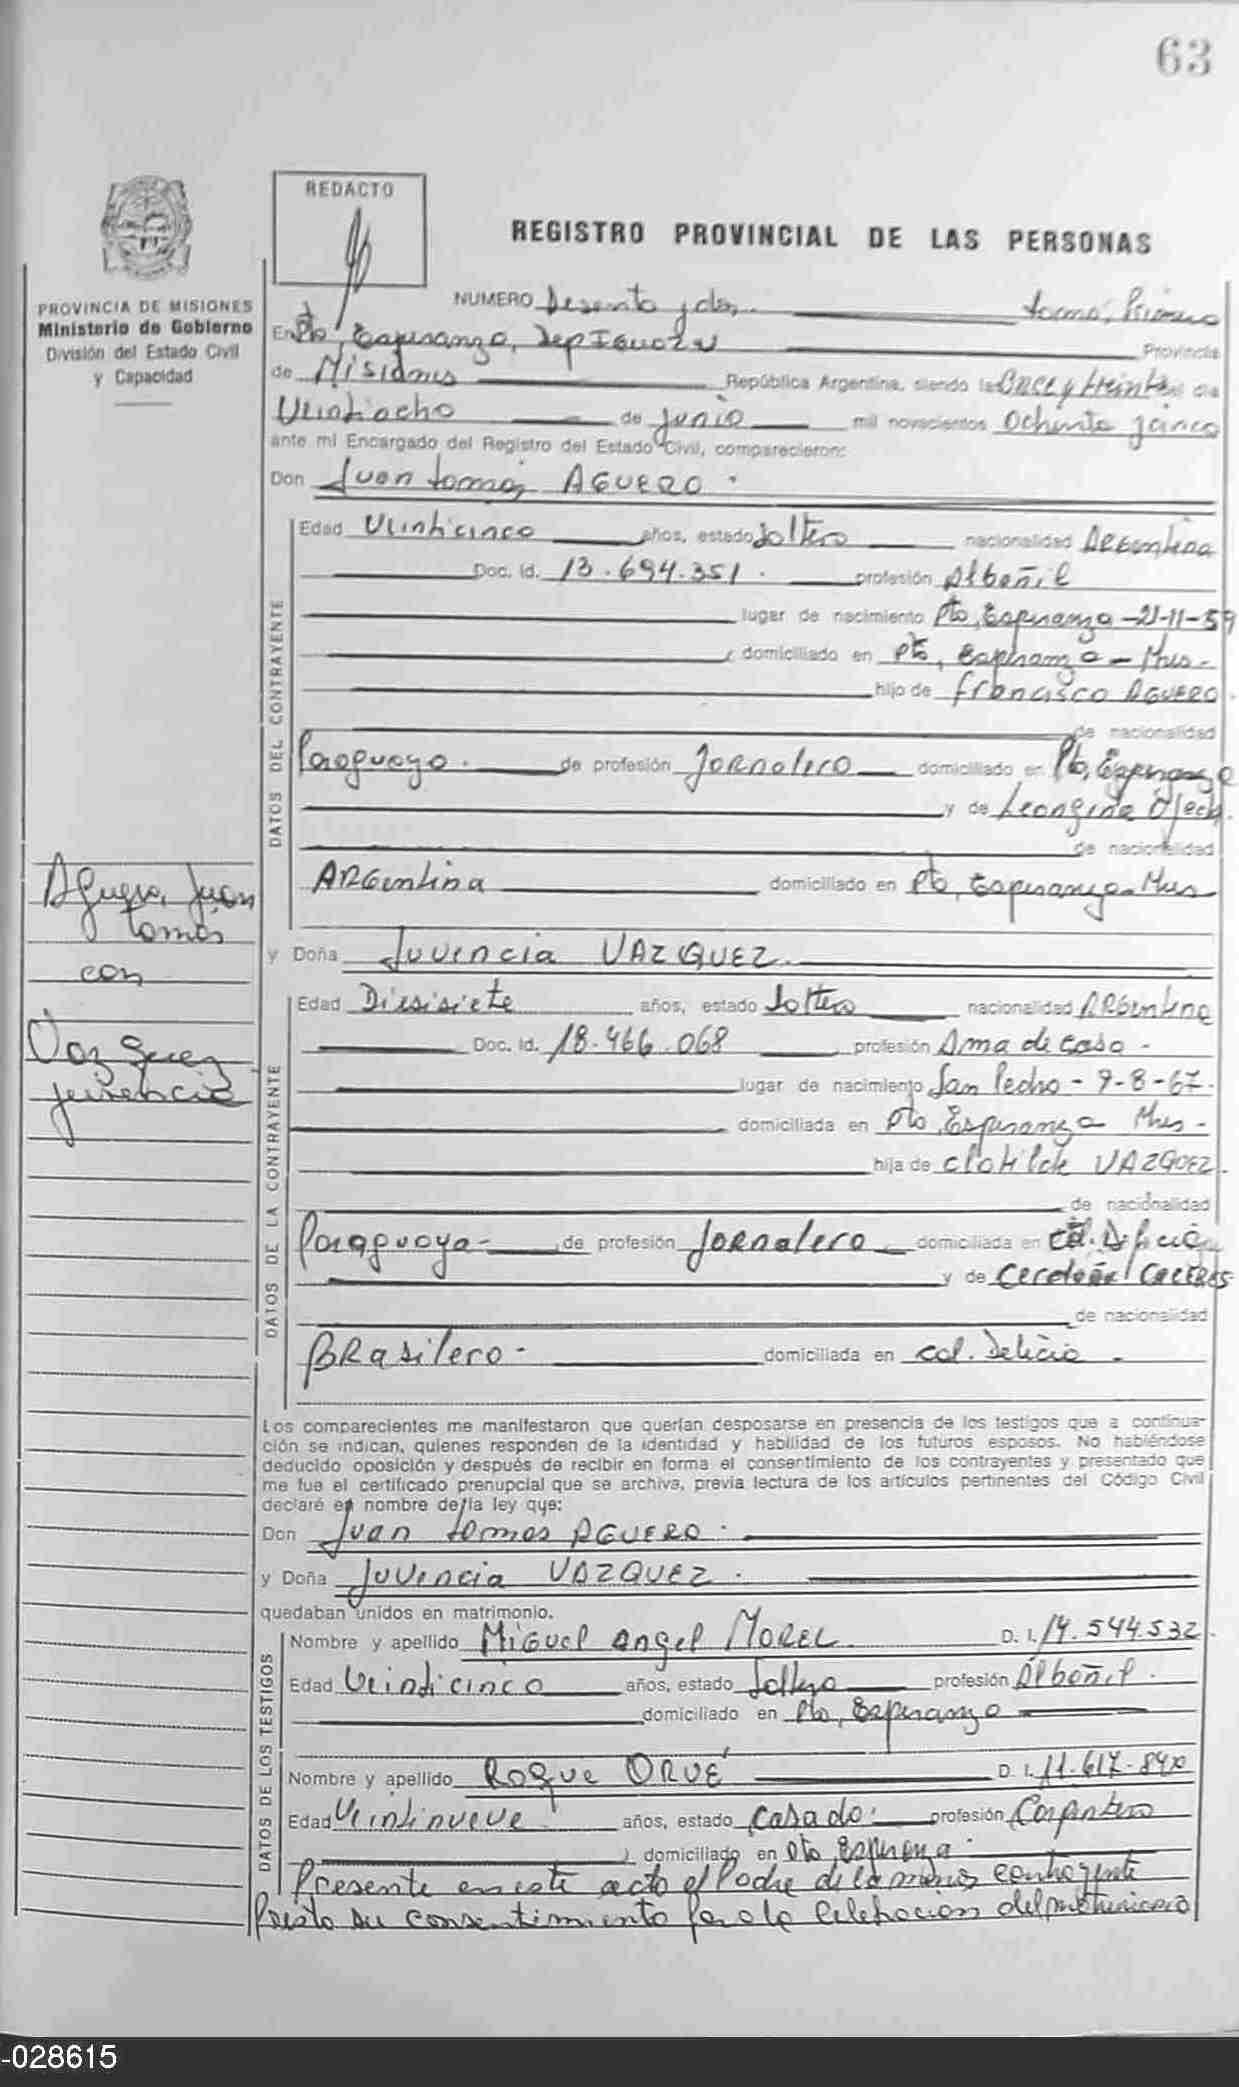 63
REDACTO
REGISTRO PROVINCIAL DE LAS PERSONAS
PROVINCIA DE MISIONES
Ministerio de Gobierno
División del Estado Civil
y Capacidad
NUMERO Sesenta y dos tomo, Primero
En Pto, Esperanza, Dep IGUAZU Provincia
de Misiones República Argentina, siendo las once y treinta del día
Veintiocho de Junio mil novecientos Ochenta y cinco
ante mí Encargado del Registro del Estado Civil, comparecieron:
Don Juan Tomás AGUERO.
DATOS DEL CONTRAYENTE
Edad Veinticinco años, estado Soltero nacionalidad Argentina
Doc. Id. 13.694.351. profesión Albañil
lugar de nacimiento Pto, Esperanza -21-11-59
domiciliado en Pto, Esperanza - Mnes -
hijo de Francisco AGUERO.
de nacionalidad
Paraguayo. de profesión Jornalero domiciliado en Pto, Esperanza
y de Leongina Ojeda.
de nacionalidad
ARGentina domiciliado en Pto, Esperanza Mnes
Aguero, Juan
Tomás
con
Vazquez
Juvencia
y Doña Juvencia VAZQUEZ.
DATOS DE LA CONTRAYENTE
Edad Diesisiete años, estado Soltera nacionalidad ARGentina
Doc. Id. 18.466.068 profesión Ama de casa -
lugar de nacimiento San Pedro - 9-8-67.
domiciliada en Pto, Esperanza Mnes -
hija de Clotilde VAZQUEZ.
de nacionalidad
Paraguaya - de profesión Jornalero domiciliada en Col. Delicia
y de CACERES
de nacionalidad
BRasilero - domiciliada en Col. Delicia -
Los comparecientes me manifestaron que querían desposarse en presencia de los testigos que a continua-
ción se indican, quienes responden de la identidad y habilidad de los futuros esposos. No habiéndose
deducido oposición y después de recibir en forma el consentimiento de los contrayentes y presentado que
me fue el certificado prenupcial que se archiva, previa lectura de los artículos pertinentes del Código Civil
declaré en nombre de la ley que:
Don Juan Tomas AGUERO.
y Doña Juvencia VAZQUEZ.
quedaban unidos en matrimonio.
DATOS DE LOS TESTIGOS
Nombre y apellido Miguel Angel MOREL D. I. 14.544.532.
Edad Veinticinco años, estado Soltero profesión Albañil.
domiciliado en Pto, Esperanza
Nombre y apellido Roque ORUÉ D. I. 11.617.840
Edad Veintinueve años, estado Casado. profesión Carpintero
domiciliado en Pto Esperanza.
Presente en este acto el Padre de la menor contrayente
Presto su consentimiento para la celebracion del matrimonio
-028615